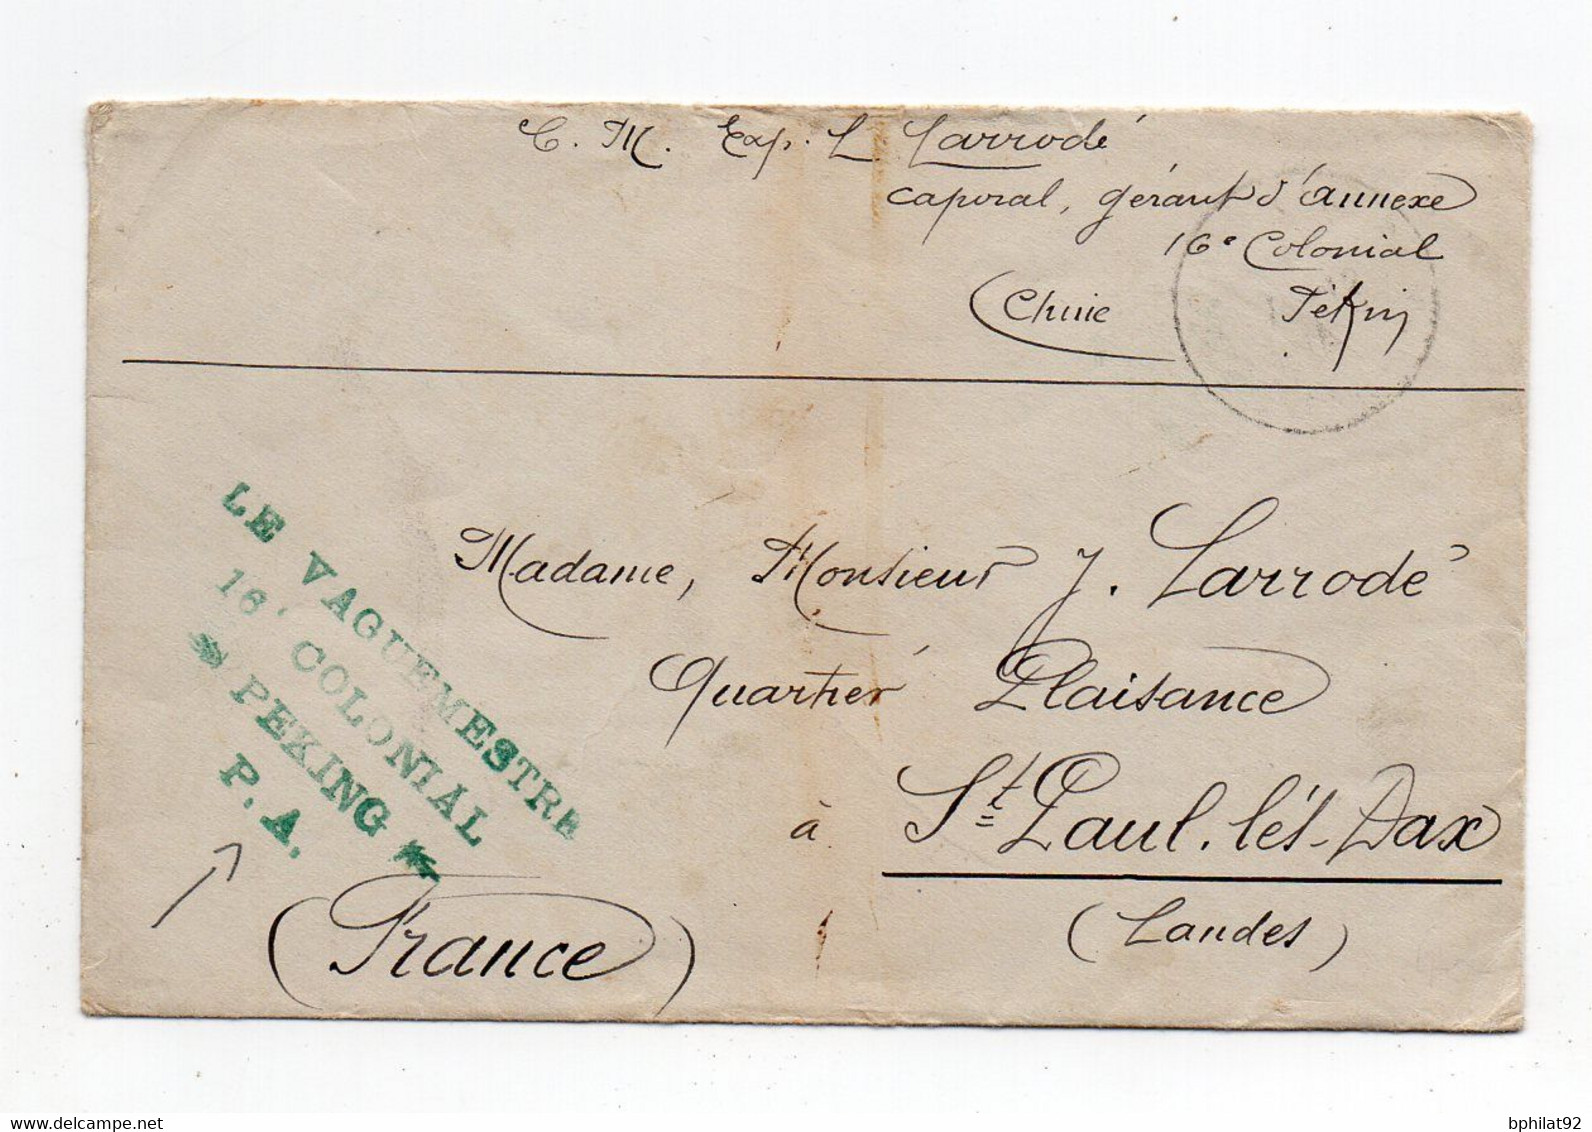 C. M. Exp. L. Larrodé
caporal, gérant d'annexe
16e Colonial
(Chine Pékin
LE VAGUEMESTRE
16e COLONIAL
* PEKING *
P. A.
Madame, Monsieur J. Larrodé
Quartier Plaisance
à St Paul-lés-Dax
(Landes)
(France)
delcampe.net
bphilat92